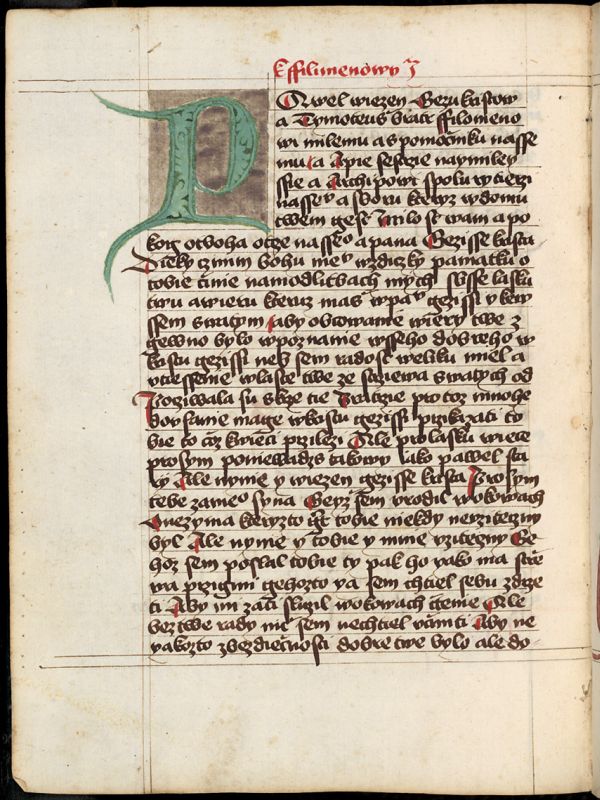 K ffilimenowy J
PAwel wiezen Gezukristow
a Tymoteus bratr ffilomeno
wi milemu a s pomocniku nasse
mu a Apie sestrze naymiley
ssie a Archipowi spolu rytierzi
nasseᵒ a sboru kteryz w domu
twem gest Milost wam a po
koig ot boha otcze nasseᵒ a pana Gezisse krista
Dieky czinim bohu meᵒ wzdiczky pamatku o
tobie cinie na modlitbach mych Slisse lasku
twu a wieru kteruz mas w paᵒ gezissi y ke wy
ssem swatym aby obcowanie wiery twe z
gewno bylo w poznanie wsseho dobreho w
kristu gezissi neb sem radost weliku miel a
vtiessenie w lasce twe ze strziewa swatych od
poziwala su skrze tie bratrzie pro toz mnohe
dowfanie mage w kristu gezissi przikazati to
bie to coz k wieci przilezi Ale pro lasku wiece
prosym poniewadz s takowy iako pawel sta
ry Ale nynie y wiezen gezisse krista Prosym
tebe za meᵒ syna Geyz sem vrodil w okowach
Onezyma kteryzto gt tobie niekdy nevzitecny
byl Ale nynie y tobie y mnie vzitecny Ge
hoz sem poslal tobie ty pak ho yako ma strze
wa przigmi gehozto ya sem chtiel sebu zdrze
ti Aby mi za ti sluzil w okowach ctenie Ale
bez twe rady nic sem nechtiel vciniti Aby ne
yakozto z bezdiecnosti dobre twe bylo ale do-